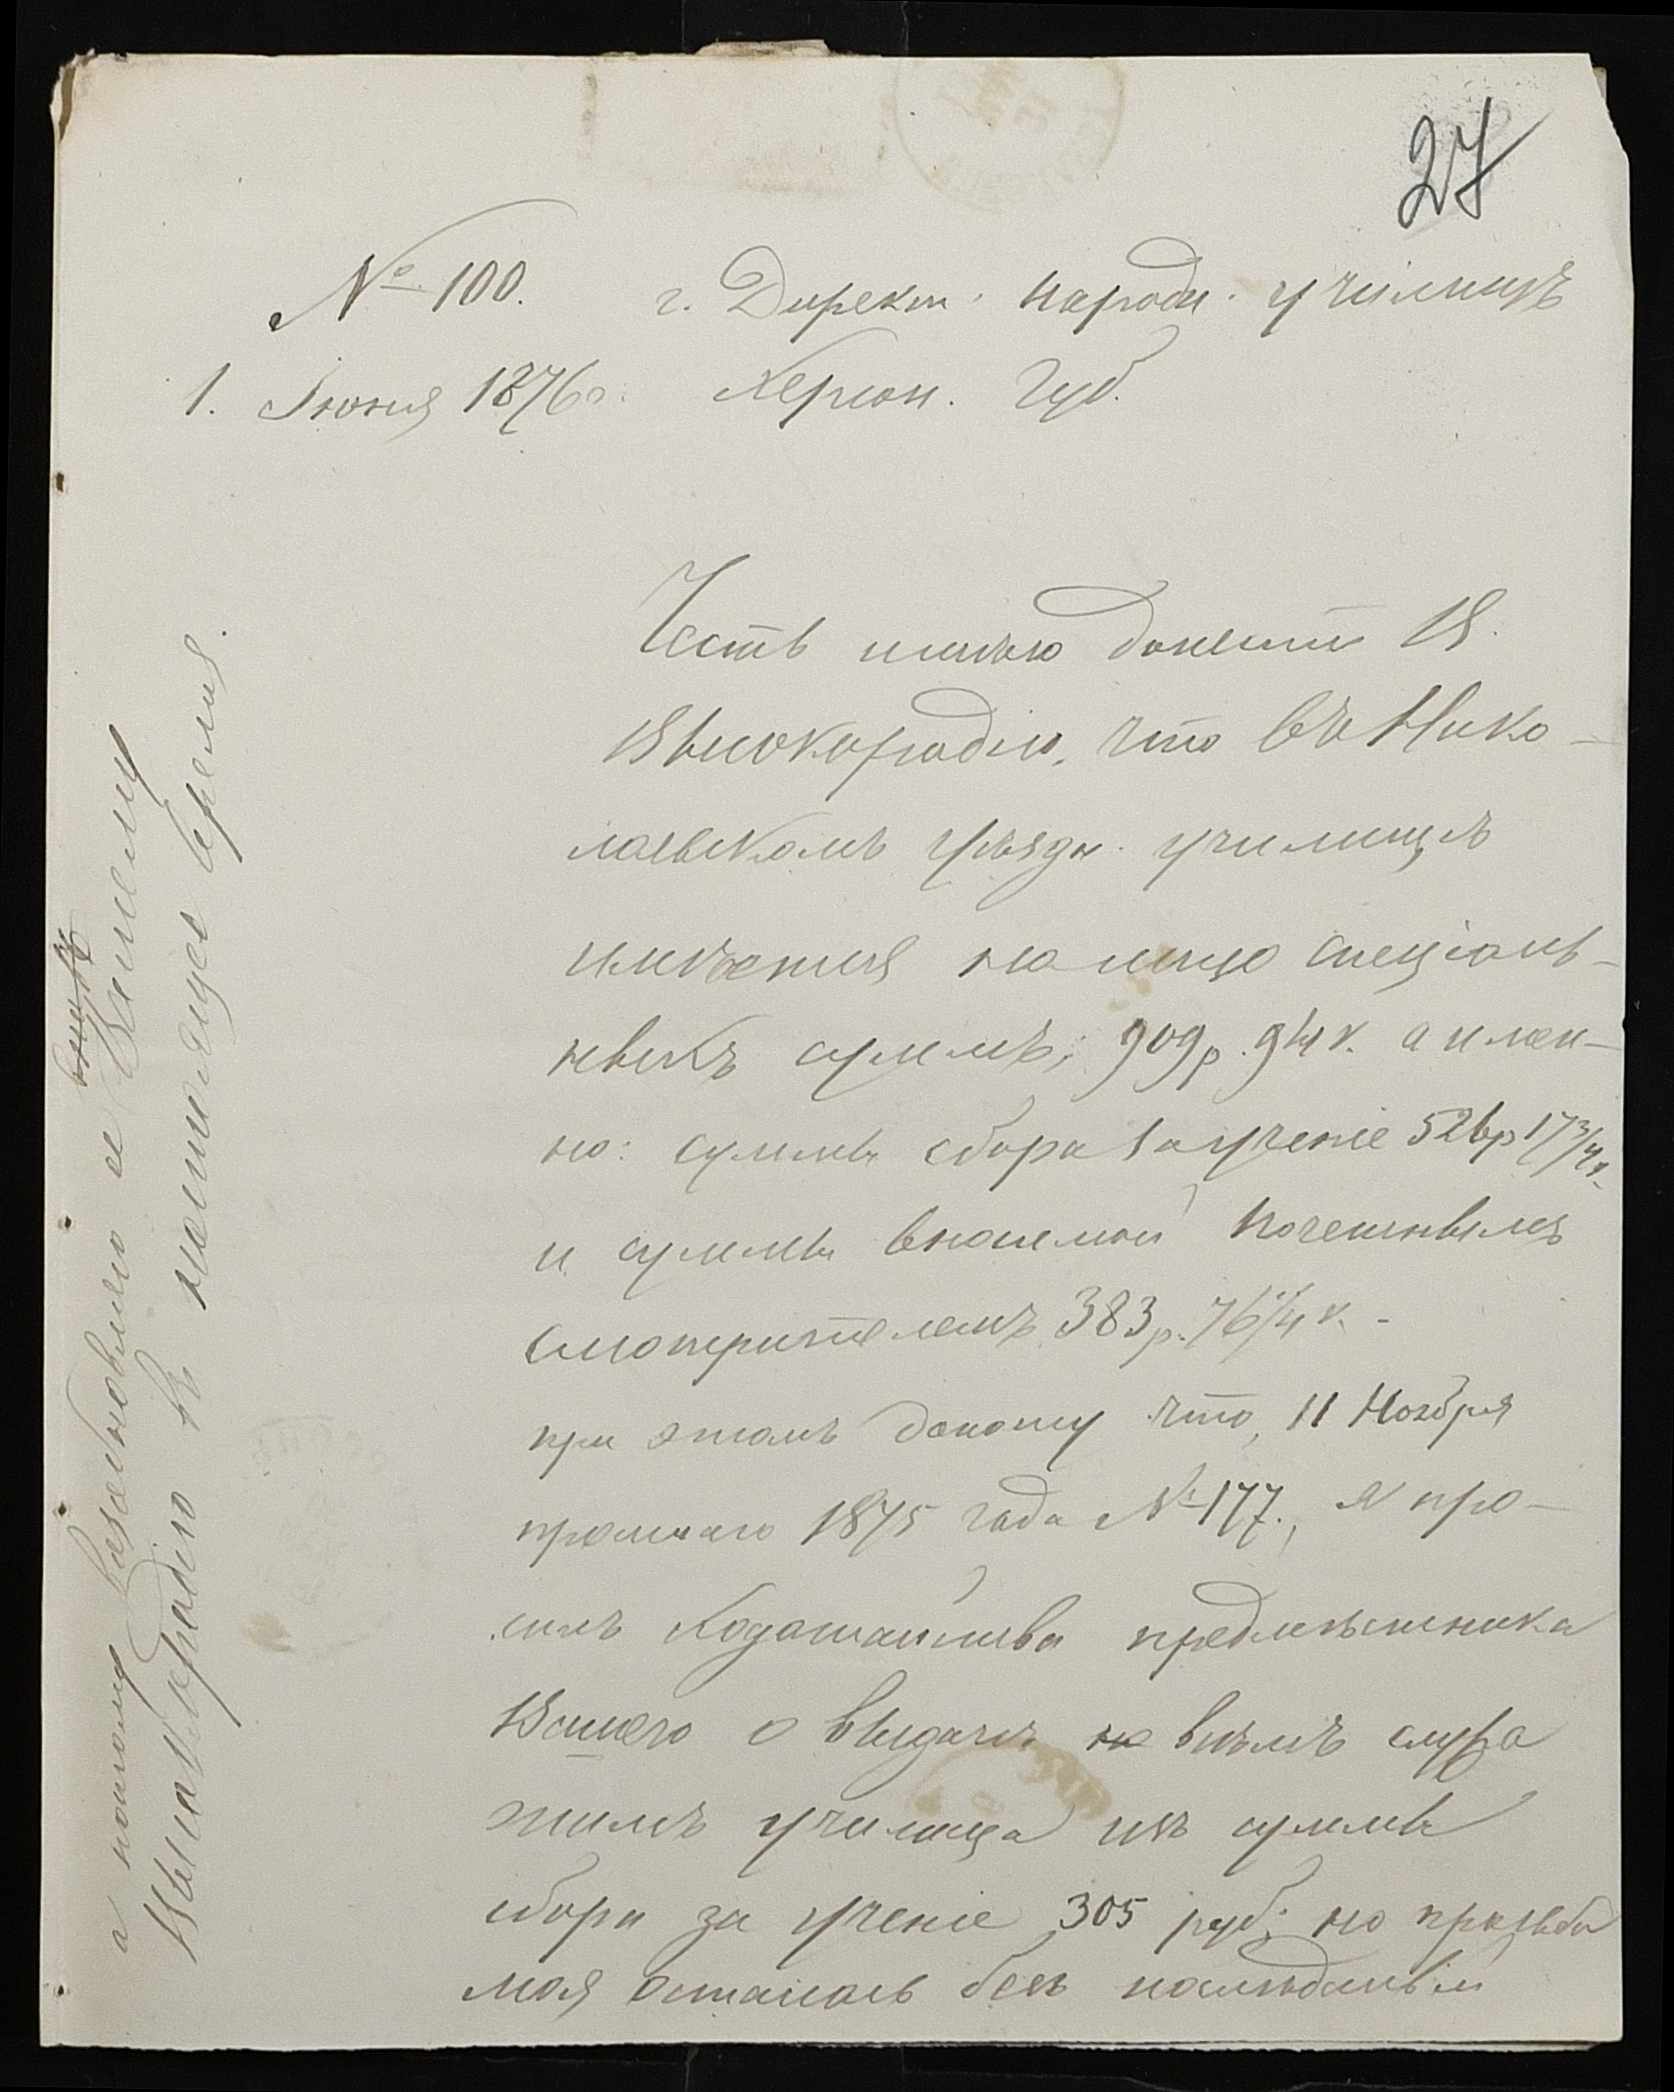 27
№ 100. г. Директ. народн. училищъ
1. Іюня 1876 г. Херсон. Губ.
Честь имѣю донести В.
Высокородію, что въ Нико-
лаевскомъ уѣздн. училищѣ
имѣется на лицо спеціаль-
ныхъ суммъ; 909 р. 94 к. а имен-
но: суммы сбора за ученіе 526 р 17 3/4 к.
и суммы вносимой Почетнымъ
Смотрителемъ 383 р. 76 1/4 к. -
при этомъ доношу что, 11 Ноября
прошлаго 1875 года № 177., я про-
силъ ходатайства предмѣстника
Вашего о выдачѣ не всѣмъ служа
щимъ училища изъ суммы
сбора за ученіе 305 руб; но прозьба
моя осталась безъ послѣдствій
а потому возобновляю ее Вашему
Высокородію въ настоящее время.